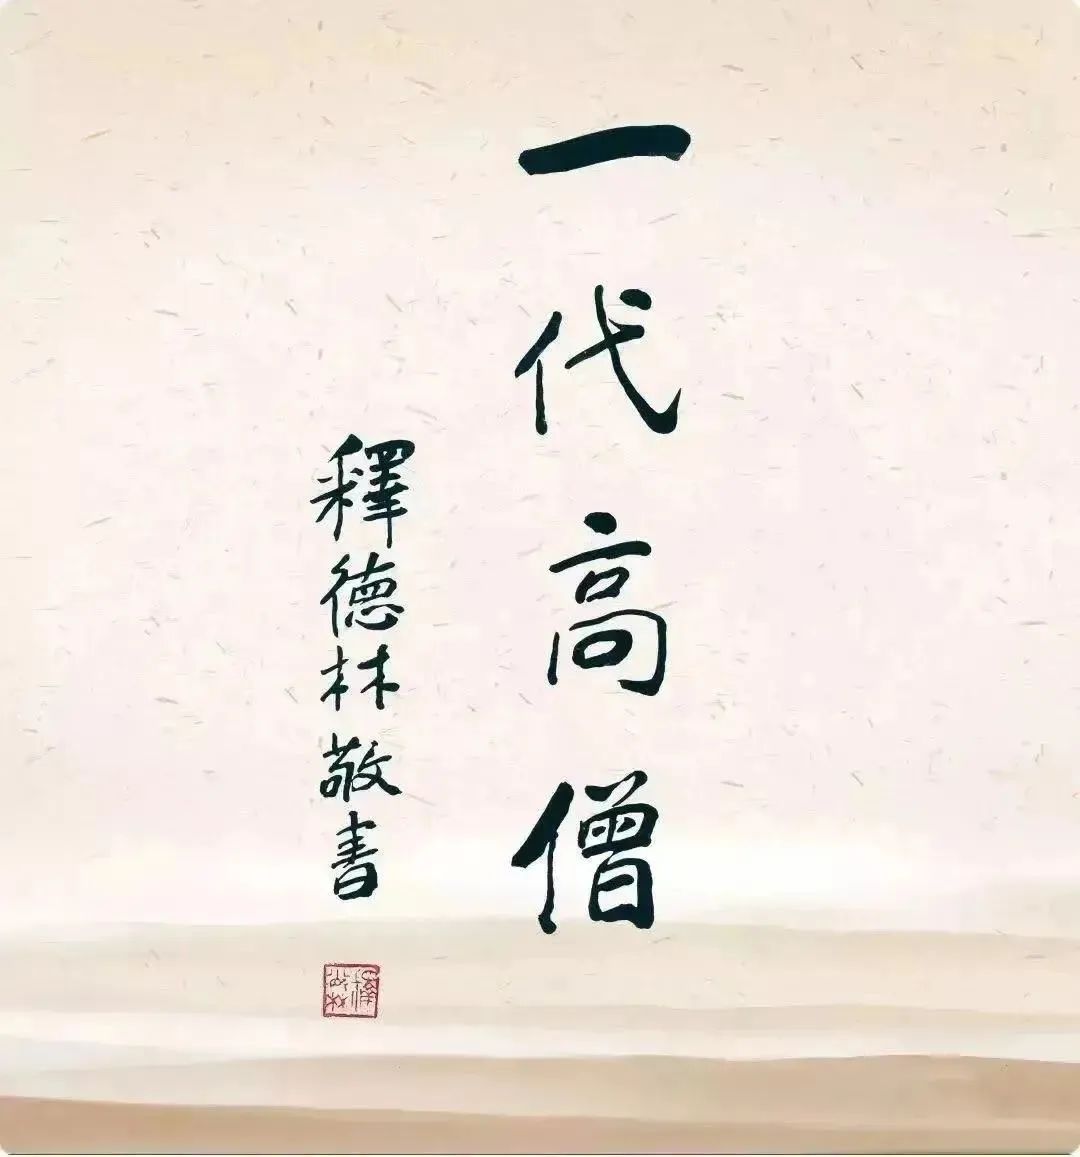 一代高僧
釋德林敬書